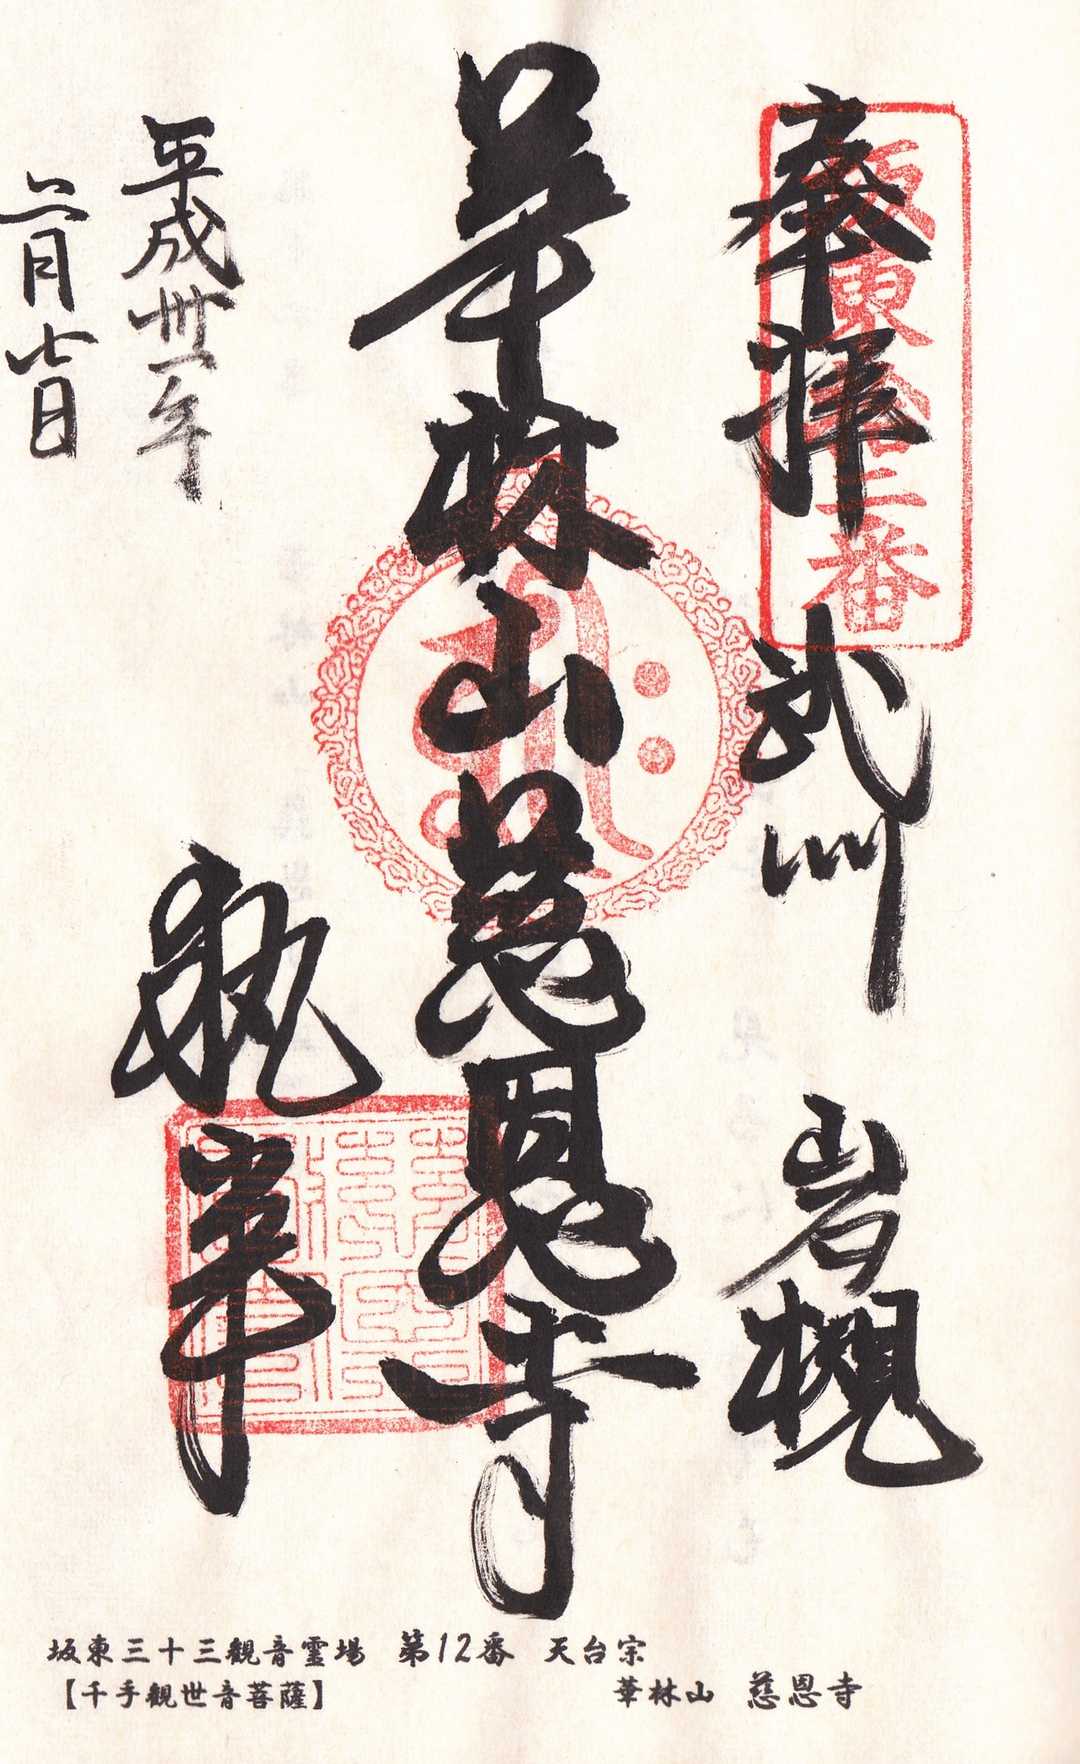 奉拝
武州
岩槻
坂東十二番
華林山慈恩寺
平成卅一年
二月七日
執事
坂東三十三観音霊場 第12番 天台宗
【千手観世音菩薩】 華林山 慈恩寺